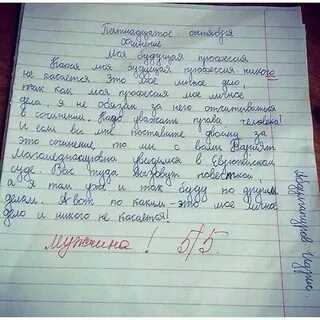 Пятнадцатое октября
Сочинение
Моя будущая профессия
Какая моя будущая профессия никого
не касается. Это мое личное дело
так как моя профессия мое личное
дела, я не обязан за него отчитываться
в сочинении. Надо уважать права человека!
И если вы мне поставите двойку за
это сочинение то мы с вами Барият
Магомедшапиевна увидимся в Европейском
суде. Вас туда вызовут повесткой
а Я там уже и так буду по другим
делам. А вот по каким - это мое личное
дело и никого не касается!
мужчина! 5/5.
Абдулгапуров Идрис.